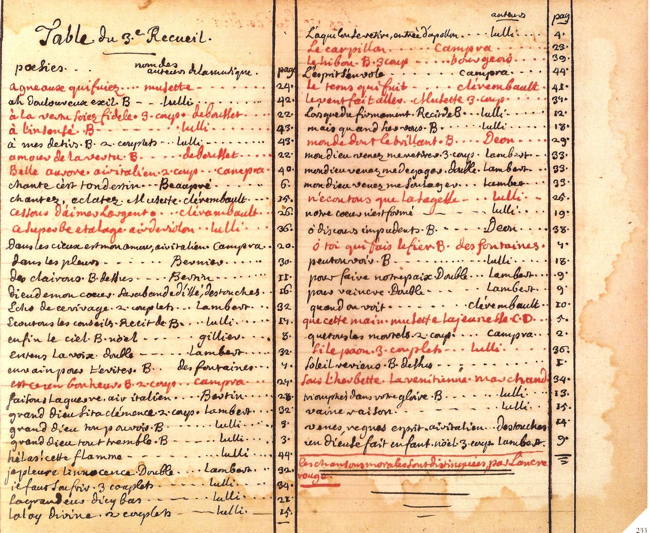 Table du 3.e Recueil.
poesies. nom des auteurs de la musique. pag
agneaux qui fuiez musette 24.
ah douloureux exil. B lulli. 42.
à la vertu soiez fidele. 3. coup. debousset 22.
à l'insensé. B. lulli. 43.
à mes desirs. B. 2 couplets. lulli. 43.
amour de la vertu. B debousset 22.
Belle aurore. air italien. 2. coup. campra 40.
chante cert tondessin. Beaupré 6.
chantez, éclatez. Musette clérembault. 15.
cessons d'aimer l'argent clérambault 26.
ce superbe etalage air de violon lulli 36.
Dans les cieux est mon amour, air italien. Campra 20.
dans les pleurs Bernier. 30
des clairons. B. dessus. Bertin 11.
dieu de mon coeur. destouches 16.
Echo de ce rivage. 2. couplets. Lambert. 32
Ecoutons les conseils. Recit de B. lulli. 17.
enfin le ciel. B. noël. gillier. 8.
entens la voix double Lambert 32.
en vain B. des fontaines. 4.
est ce un bonheur. B. 2. coup. campra 24.
faisons la guerre. air italien. Bertin 28.
grand dieu ta clémence. 2. coup. Lambert 32
grand dieu ton pouvoir. B. lulli 8.
grand dieu tout tremble. B lulli 3.
helas! cette flamme lulli 44
je pleure l'innocence. Double Lambert 32
il faut soufrir. 3 couplets lulli. 34.
la grandeur d'icy bas lulli. 21
la loy divine. 2. couplets lulli. 15.
auteurs pag
L'aquilon se retire, entrée d'apollon. lulli. 4.
Le carpillon Campra 23.
le hibou. B. 3. coup bourgeois 39.
L'esprit s'envole campra. 44
le tems qui fuit clérembault 41
le vent fait alles. Musette. 3. coup. 37.
lors que du firmament. Recit de B. lulli. 12
mais quand B. lulli. 18
monde dont le brillant. B. Deon 29.
mon dieu venez me mettre. 3. coup. Lambert 33.
mon dieu venez me Double. Lambert. 33.
mon dieu venez me soulager Lambert 33
n'écoutons que la sagesse lulli. 25
notre coeur n'est formé lulli. 19.
ô discours impudent. B. Deon 38.
ô toi qui fais le fier. B. des fontaines. 7.
peut on voir. B lulli. 18
pour faire notre paix Double. Lambert. 9.
pour vaincre. Double Lambert 9.
quand on voit clérembault. 10.
que cette main. musette la jeune. de C.D. 5.
que tous les mortels. 2. coup. Campra. 2.
si le paon. 3. couplets lulli. 36.
soleil revient. B. dessus 1.
sous l'herbette. La venitienne. marchand 34.
triomphez dans votre gloire. B. lulli. 13.
vaine raison lulli. 15.
venez, regnez esprit. air italien. destouches 14.
un dieu se fait enfant. noël. 3. coup. Lambert. 9.
les chansons morales sont distinguées par l'ancre
rouge.
233